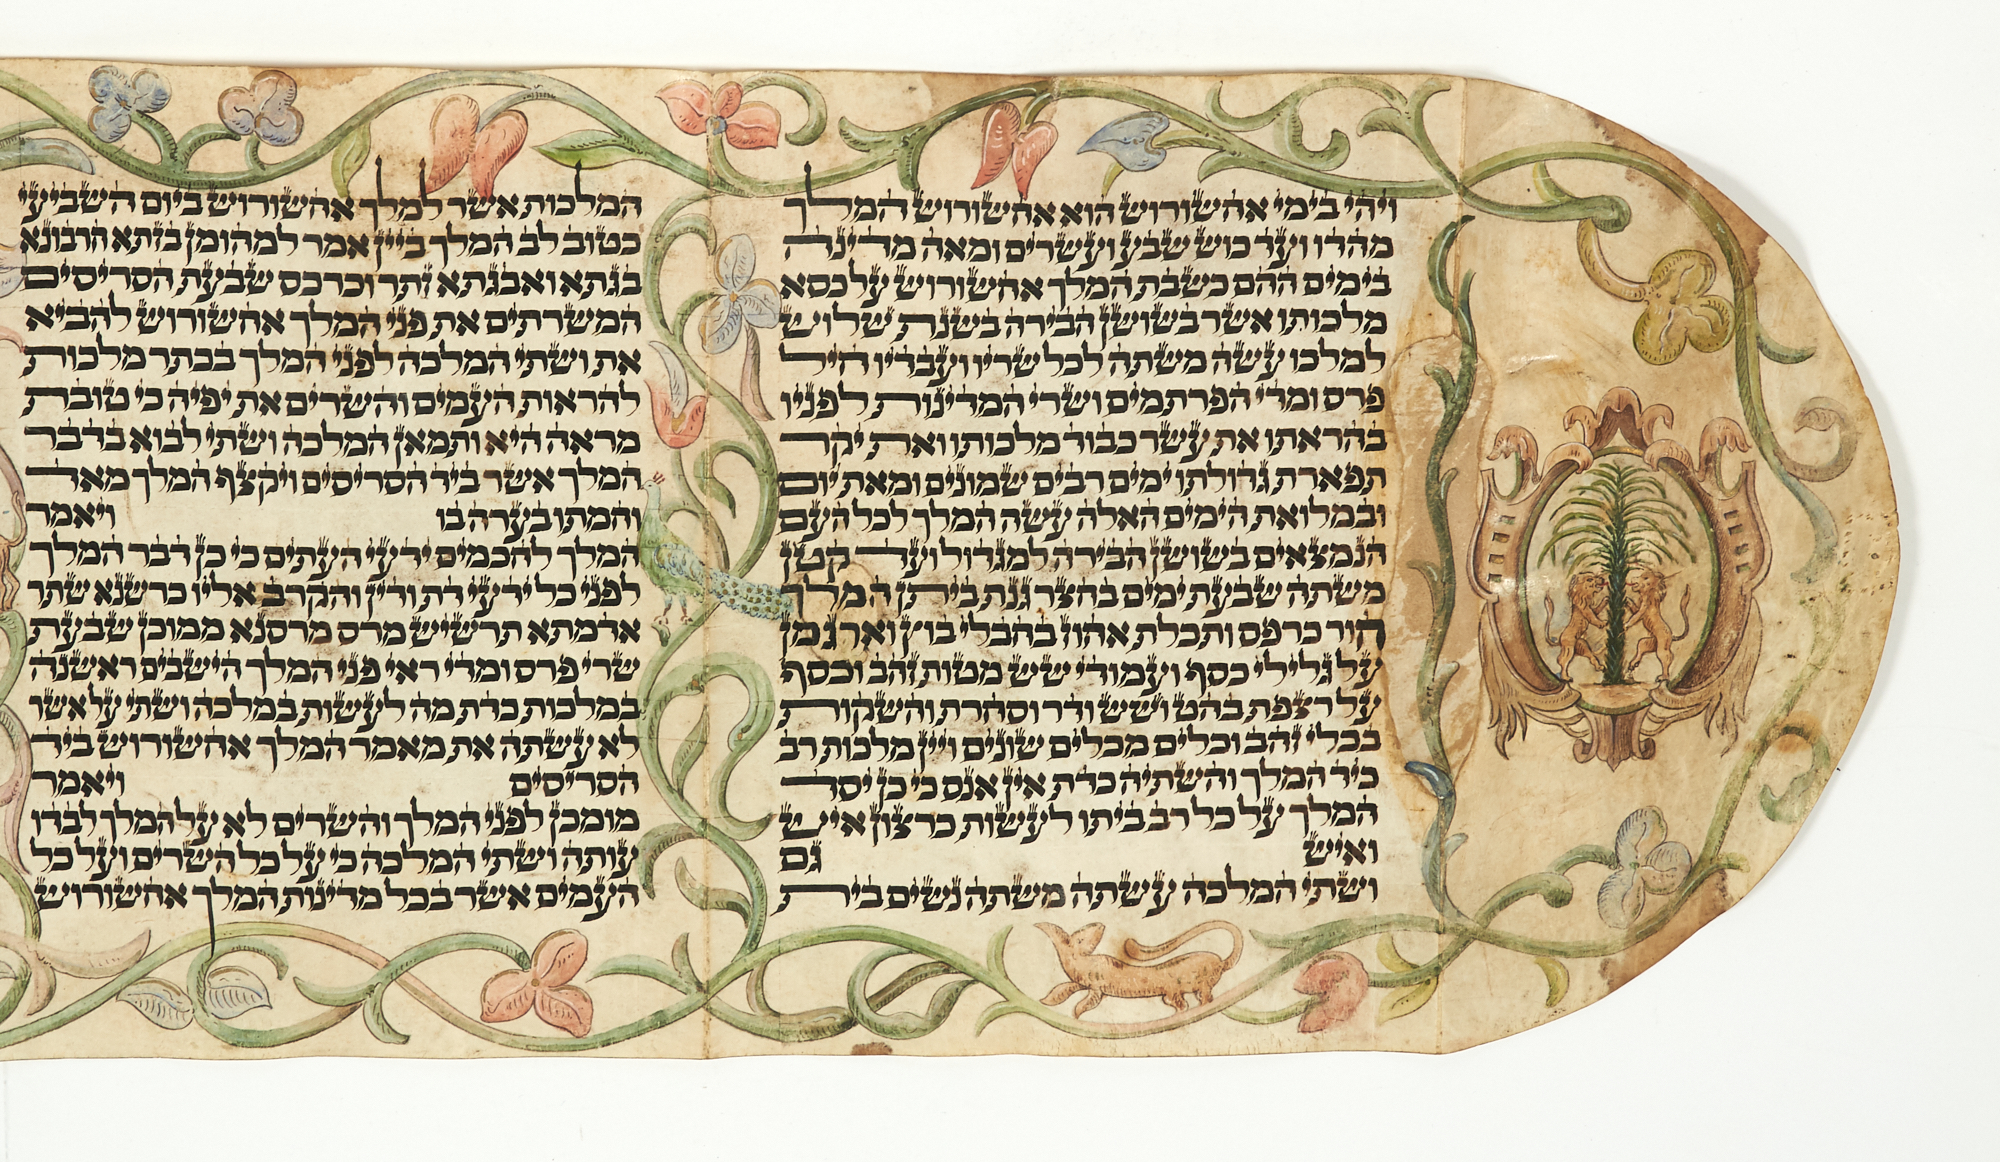 ויהי בימי אחשורוש הוא אחשורוש המלך
מהדו ועד כוש שבע ועשרים ומאה מדינה
בימים ההם כשבת המלך אחשורוש על כסא
מלכותו אשר בשושן הבירה בשנת שלוש
למלכו עשה משתה לכל שריו ועבדיו חיל
פרס ומדי הפרתמים ושרי המדינות לפניו
בהראתו את עשר כבוד מלכותו ואת יקר
תפארת גדולתו ימים רבים שמונים ומאת יום
ובמלואת הימים האלה עשה המלך לכל העם
הנמצאים בשושן הבירה למגדול ועד קטן
משתה שבעת ימים בחצר גנת ביתן המלך
חור כרפס ותכלת אחוז בחבלי בוץ וארגמן
על גלילי כסף ועמודי שש מטות זהב וכסף
על רצפת בהט ושש ודר וסחרת והשקות
בכלי זהב וכלים מכלים שונים ויין מלכות רב
כיד המלך והשתיה כדת אין אנס כי כן יסד
המלך על כל רב ביתו לעשות כרצון איש
ואיש גם
ושתי המלכה עשתה משתה נשים בית
המלכות אשר למלך אחשורוש ביום השביעי
כטוב לב המלך ביין אמר למהומן בזתא חרבונא
בגתא ואבגתא זתר וכרכס שבעת הסריסים
המשרתים את פני המלך אחשורוש להביא
את ושתי המלכה לפני המלך בכתר מלכות
להראות העמים והשרים את יפיה כי טובת
מראה היא ותמאן המלכה ושתי לבוא בדבר
המלך אשר ביד הסריסים ויקצף המלך מאד
וחמתו בערה בו ויאמר
המלך לחכמים ידעי העתים כי כן דבר המלך
לפני כל ידעי דת ודין והקרב אליו כרשנא שתר
אדמתא תרשיש מרס מרסנא ממוכן שבעת
שרי פרס ומדי ראי פני המלך הישבים ראשנה
במלכות כדת מה לעשות במלכה ושתי על אשר
לא עשתה את מאמר המלך אחשורוש ביד
הסריסים ויאמר
מומכן לפני המלך והשרים לא על המלך לבדו
עותה ושתי המלכה כי על כל השרים ועל כל
העמים אשר בכל מדינות המלך אחשורוש